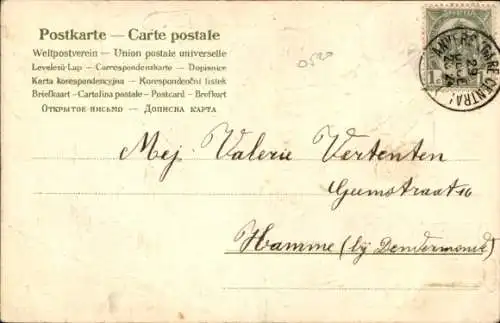 Postkarte — Carte postale
Weltpostverein — Union postale universelle
Levelező-Lap — Correspondenzkarte — Dopisnice
Karta korespondencyjna — Korespondenční lístek
Briefkaart — Cartolina postale — Postcard — Brefkort
Открытое письмо — Дописна карта
0520
ANVERS (GARE CENTRAL)
29
Mej. Valerie Vertenten
Geemstraat 16
Hamme (bij Dendermonde)